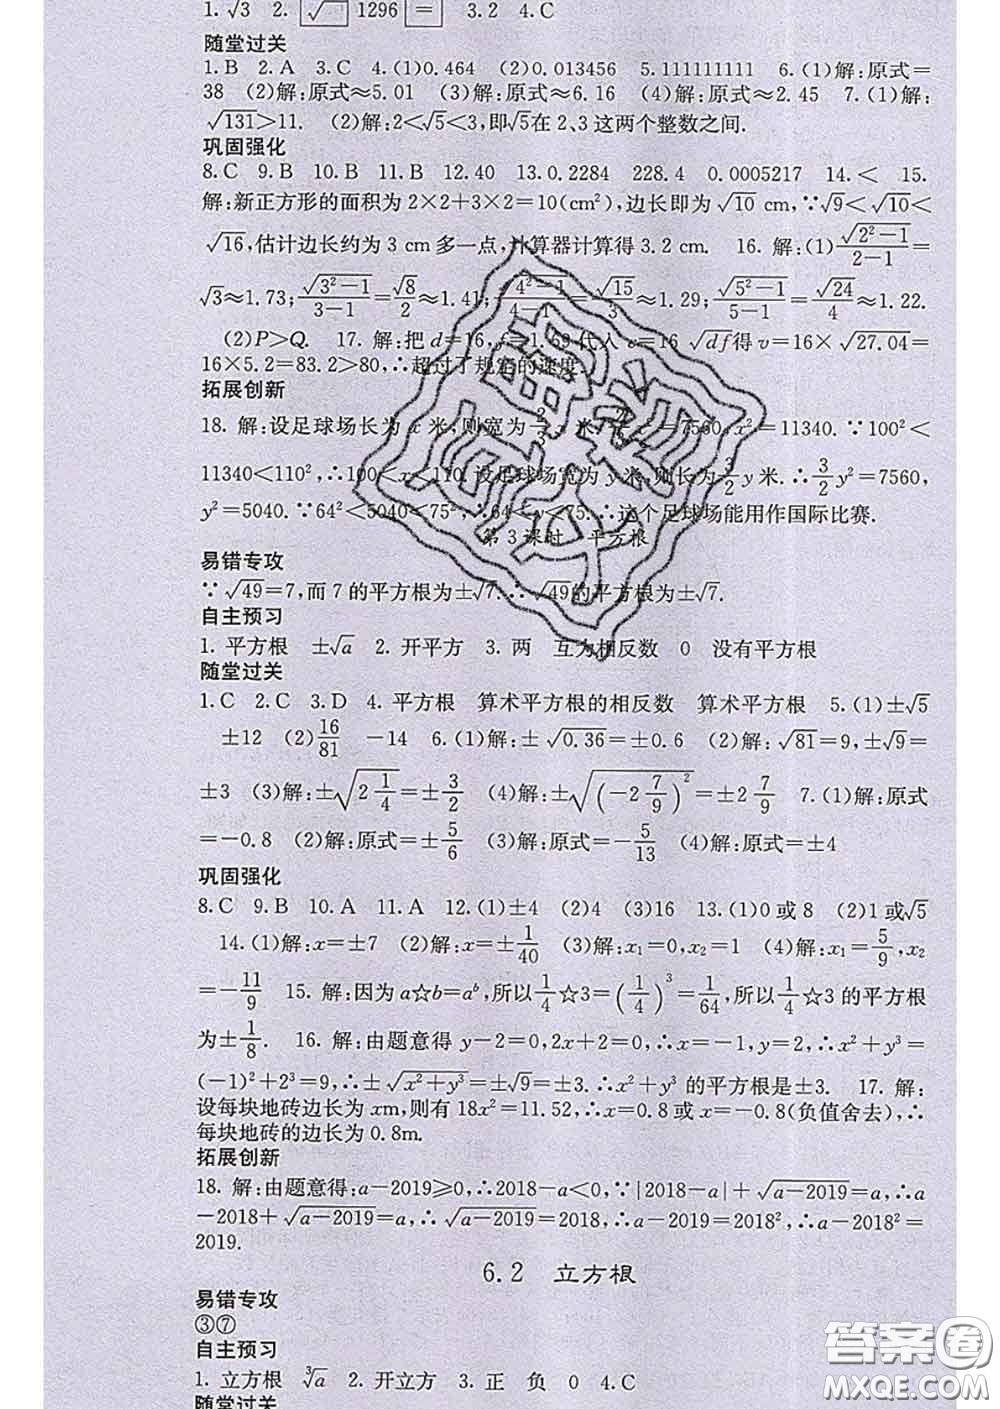 1. √3　2. √ 1296 =　3. 2　4. C
随堂过关
1. B　2. A　3. C　4. (1)0. 464　(2)0. 013456　5. 111111111　6. (1)解:原式=
38　(2)解:原式≈5. 01　(3)解:原式≈6. 16　(4)解:原式≈2. 45　7. (1)解:
√131>11.　(2)解:2<√5<3,即√5在 2、3 这两个整数之间.
巩固强化
8. C　9. B　10. B　11. B　12. 40　13. 0. 2284　228. 4　0. 0005217　14. <　15.
解:新正方形的面积为 2×2+3×2=10(cm²),边长即为√10 cm,∵√9<√10<
√16,估计边长约为 3 cm 多一点,计算器计算得 3. 2 cm.　16. 解:(1) √(2²-1)/(2-1)=
√3≈1. 73; √(3²-1)/(3-1)=√8/2≈1. 41; √(4²-1)/(4-1)=√15/3≈1. 29; √(5²-1)/(5-1)=√24/4≈1. 22.
(2)P>Q.　17. 解:把 d=16,f=1. 69 代入 v=16 √df得 v=16×√27. 04=
16×5. 2=83. 2>80,∴超过了规定的速度.
拓展创新
18. 解:设足球场长为 x 米,则宽为 2/3 x 米, 2/3 x²=7560,x²=11340. ∵100²<
11340<110²,∴100<x<110. 设足球场宽为 y 米,则长为 3/2 y 米. ∴ 3/2 y²=7560,
y²=5040. ∵64²<5040<75²,∴64<y<75. ∴这个足球场能用作国际比赛.
第 3 课时　平方根
易错专攻
∵√49=7,而 7 的平方根为±√7. ∴√49的平方根为±√7.
自主预习
1. 平方根　±√a　2. 开平方　3. 两　互为相反数　0　没有平方根
随堂过关
1. C　2. C　3. D　4. 平方根　算术平方根的相反数　算术平方根　5. (1)±√5
±12　(2) 16/81　-14　6. (1)解:±√0. 36=±0. 6　(2)解:√81=9,±√9=
±3　(3)解:±√(2 1/4)=±3/2　(4)解:±√((-2 7/9)²)=±2 7/9　7. (1)解:原式
=-0. 8　(2)解:原式=±5/6　(3)解:原式=-5/13　(4)解:原式=±4
巩固强化
8. C　9. B　10. A　11. A　12. (1)±4　(2)4　(3)16　13. (1)0 或 8　(2)1 或√5
14. (1)解:x=±7　(2)解:x=±1/40　(3)解:x₁=0,x₂=1　(4)解:x₁=5/9,x₂
=-11/9　15. 解:因为 a☆b=aᵇ,所以 1/4☆3=(1/4)³=1/64,所以 1/4☆3 的平方根
为±1/8.　16. 解:由题意得 y-2=0,2x+2=0,∴x=-1,y=2,∴x²+y³=
(-1)²+2³=9,∴±√(x²+y³)=±√9=±3. ∴x²+y³ 的平方根是±3.　17. 解:
设每块地砖边长为 xm,则有 18x²=11. 52,∴x=0. 8 或 x=-0. 8(负值舍去),∴
每块地砖的边长为 0. 8m.
拓展创新
18. 解:由题意得:a-2019≥0,∴2018-a<0,∵|2018-a|+√(a-2019)=a,∴a
-2018+√(a-2019)=a,∴√(a-2019)=2018,∴a-2019=2018²,∴a-2018²=
2019.
6.2　立方根
易错专攻
③⑦
自主预习
1. 立方根　³√a　2. 开立方　3. 正　负　0　4. C
随堂过关
答案圈
MXQE.COM